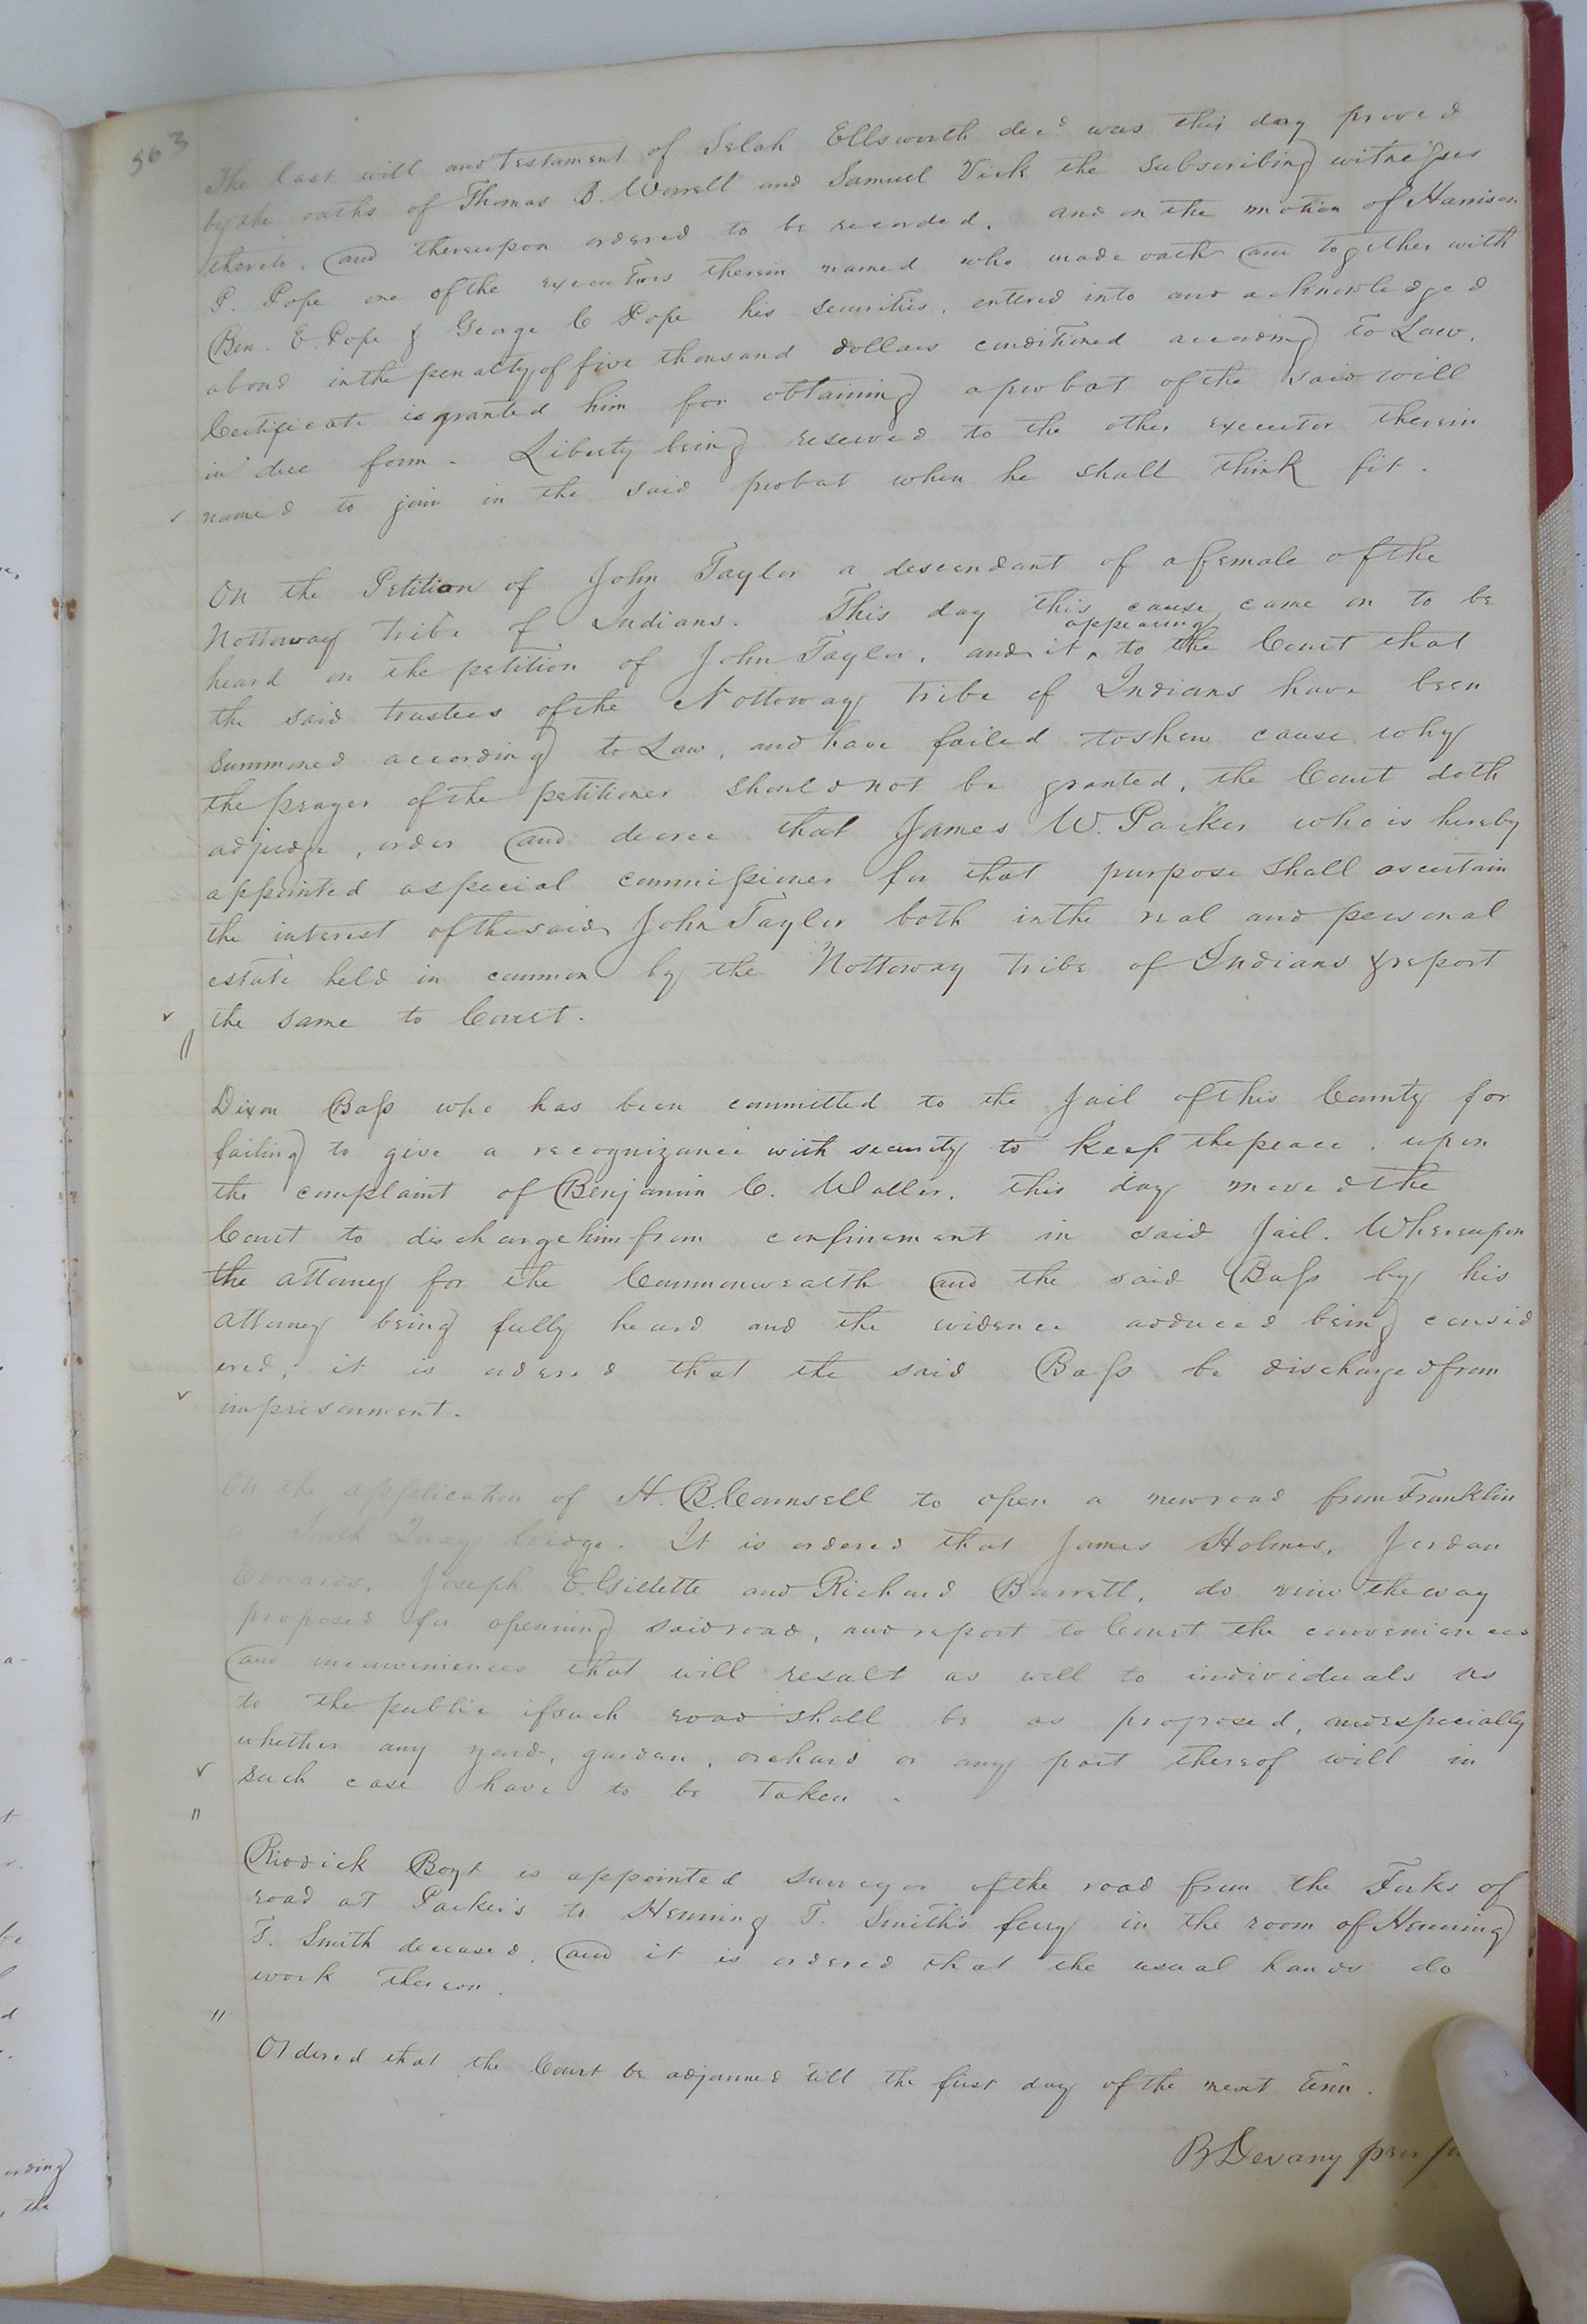 563
The last will and Testament of Selah Ellsworth decd was this day proved
by the oaths of Thomas B. Worrell and Samuel Vick the subscribing witnesses
thereto, and thereupon ordered to be recorded, and on the motion of Harrison
P. Pope one of the executors therein named who made oath and together with
Ben. E. Pope & George C Pope his securities, entered into and acknowledged
a bond in the penalty of five thousand dollars conditioned according to Law,
Certificate is granted him for obtaining a probat of the said will
in due form. Liberty being reserved to the other executor therein
named to join in the said probat when he shall think fit.
On the Petition of John Taylor a descendant of a female of the
Nottoway tribe of Indians. This day this cause came on to be
heard on the petition of John Taylor, and it ^ appearing to the Court that
the said trustees of the Nottoway tribe of Indians have been
summoned according to Law, and have failed to shew cause why
the prayer of the petitioner should not be granted, the Court doth
adjudge, order and decree that James W. Parker who is hereby
appointed a special commissioner for that purpose shall ascertain
the interest of the said John Taylor both in the real and personal
estate held in common by the Nottoway tribe of Indians & report
the same to Court.
Dixon Bass who has been committed to the Jail of this County for
failing to give a recognizance with security to keep the peace, upon
the complaint of Benjamin C. Waller, this day moved the
Court to discharge him from confinement in said Jail. Whereupon
the attorney for the Commonwealth and the said Bass by his
attorney being fully heard and the evidence adduced being consid
ered, it is ordered that the said Bass be discharged from
imprisonment.
On the application of H. B. Counsell to open a new road from Franklin
to South Quay bridge. It is ordered that James Holmes, Jordan
Edwards, Joseph E. Gillette and Richard Barrett, do view the way
proposed for openning said road, and report to Court the conveniences
and inconveniences that will result as well to individuals as
to the public if such road shall be as proposed, and especially
whether any yard, garden, orchard or any part thereof will in
such case have to be taken.
Riddick Boyt is appointed surveyor of the road from the Forks of
road at Parker's to Henning T. Smith's ferry in the room of Henning
T. Smith deceased, and it is ordered that the usual hands do
work thereon.
Ordered that the Court be adjourned till the first day of the next term.
B Devany pres